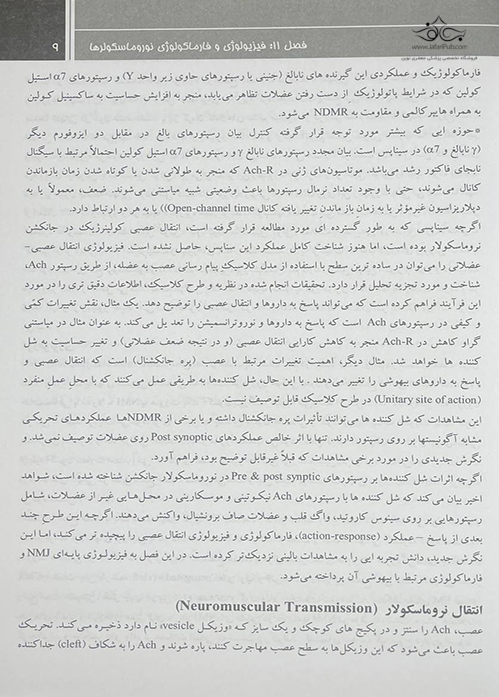 www.JafariPub.com
فروشگاه تخصصی پزشکی جعفری نوین
فصل ۱۱: فیزیولوژی و فارماکولوژی نوروماسکولرها ۹
فارماکولوژیک و عملکردی این گیرنده های نابالغ (جنینی یا رسپتورهای حاوی زیر واحد Y) و رسپتورهای α7 استیل
کولین که در شرایط پاتولوژیک از دست رفتن عضلات تظاهر می‌یابد، منجر به افزایش حساسیت به ساکسینیل کولین
به همراه هایپرکالمی و مقاومت به NDMR می‌شود.
*حوزه ایی که بیشتر مورد توجه قرار گرفته کنترل بیان رسپتورهای بالغ در مقابل دو ایزوفورم دیگر
(γ نابالغ و α7) در سیناپس است. بیان مجدد رسپتورهای نابالغ γ و رسپتورهای α7 استیل کولین احتمالاً مرتبط با سیگنال
نابجای فاکتور رشد می‌باشد. موتاسیون‌های ژنی در Ach-R که منجر به طولانی شدن یا کوتاه شدن زمان بازماندن
کانال می‌شوند، حتی با وجود تعداد نرمال رسپتورها باعث وضعیتی شبیه میاستنی می‌شوند. ضعف، معمولاً یا به
دپلاریزاسیون غیرمؤثر یا به زمان باز ماندن تغییر یافته کانال (Open-channel time)) یا به هر دو ارتباط دارد.
اگرچه سیناپسی که به طور گسترده ای مورد مطالعه قرار گرفته است، انتقال عصبی کولینرژیک در جانکشن
نروماسکولار بوده است، اما هنوز شناخت کامل عملکرد این سیناپس، حاصل نشده است. فیزیولوژی انتقال عصبی–
عضلانی را می‌توان در ساده ترین سطح با استفاده از مدل کلاسیک پیام رسانی عصب به عضله، از طریق رسپتور Ach،
شناخت و مورد تجزیه تحلیل قرار دارد. تحقیقات انجام شده در نظریه و طرح کلاسیک، اطلاعات دقیق تری را در مورد
این فرآیند فراهم کرده است که می‌تواند پاسخ به داروها و انتقال عصبی را توضیح دهد. یک مثال، نقش تغییرات کمّی
و کیفی در رسپتورهای Ach است که پاسخ به داروها و نوروترانسمیشن را تعدیل می‌کند. به عنوان مثال در میاستنی
گراو کاهش در Ach-R منجر به کاهش کارایی انتقال عصبی (و در نتیجه ضعف عضلانی) و تغییر حساسیت به شل
کننده ها خواهد شد. مثال دیگر، اهمیت تغییرات مرتبط با عصب (پره جانکشنال) است که انتقال عصبی و
پاسخ به داروهای بیهوشی را تغییر می‌دهند. با این حال، شل کننده‌ها به طریقی عمل می‌کنند که با محل عمل منفرد
(Unitary site of action) در طرح کلاسیک قابل توصیف نیست.
این مشاهدات که شل کننده ها می‌توانند تأثیرات پره جانکشنال داشته و یا برخی از NDMRها عملکردهای تحریکی
مشابه آگونیستها بر روی رسپتور دارند. تنها با اثر خالص عملکردهای Post synoptic روی عضلات توصیف نمی‌شد. و
نگرش جدیدی را در مورد برخی مشاهدات که قبلاً غیرقابل توضیح بود، فراهم آورد.
اگرچه اثرات شل کننده‌ها بر رسپتورهای Pre & post synptic در نوروماسکولار جانکشن شناخته شده است، شواهد
اخیر بیان می‌کند که شل کننده ها با رسپتورهای Ach نیکوتینی و موسکارینی در محل‌هایی غیر از عضلات، شامل
رسپتورهایی بر روی سینوس کاروتید، واگ قلب و عضلات صاف برونشیال، واکنش می‌دهند. اگرچه این طرح چند
بعدی از پاسخ – عملکرد (action-response)، فارماکولوژی و فیزیولوژی انتقال عصبی را پیچیده تر می‌کند، اما این
نگرش جدید، دانش تجربه ایی را به مشاهدات بالینی نزدیک‌تر کرده است. در این فصل به فیزیولوژی پایه‌ای NMJ و
فارماکولوژی مرتبط با بیهوشی آن پرداخته می‌شود.
انتقال نروماسکولار (Neuromuscular Transmission)
عصب، Ach را سنتز و در پکیج های کوچک و یک سایز که «وزیکل vesicle» نام دارد ذخیره می‌کند. تحریک
عصب باعث می‌شود که این وزیکل‌ها به سطح عصب مهاجرت کنند، پاره شوند و Ach را به شکاف (cleft) جداکننده